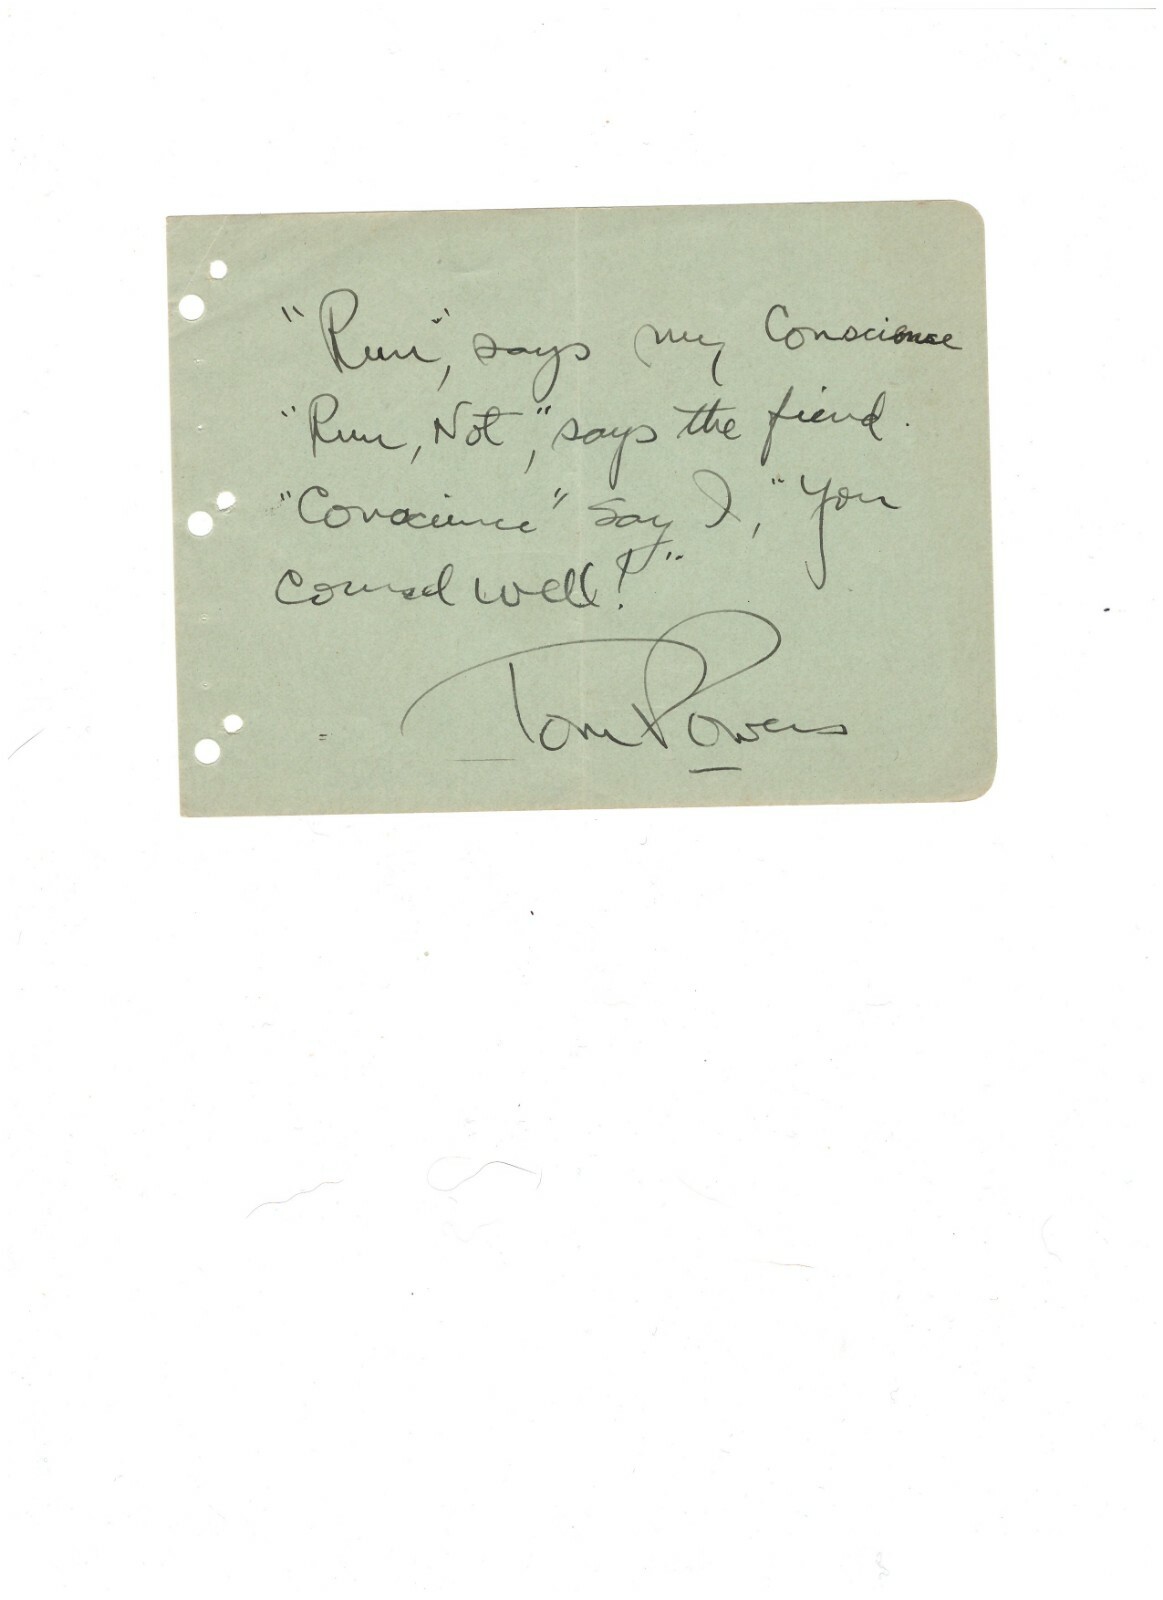 "Run", says my Conscience
"Run, Not", says the fiend.
"Conscience" say I, "You
counsel well!"
Tom Powers